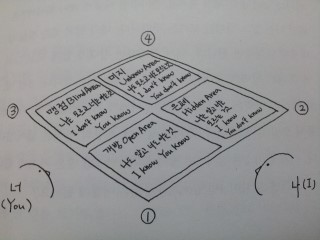 ④
맹점 Blind Area
나는 모르고 너는 아는 것
I don't know
You know
미지
Unknown Area
I don't know
You don't know
③
②
개방 Open Area
나도 알고 너도 아는 것
I know You know
은폐
Hidden Area
나는 알고 너는
모르는 것
I know
You don't know
너
(You)
나(I)
①